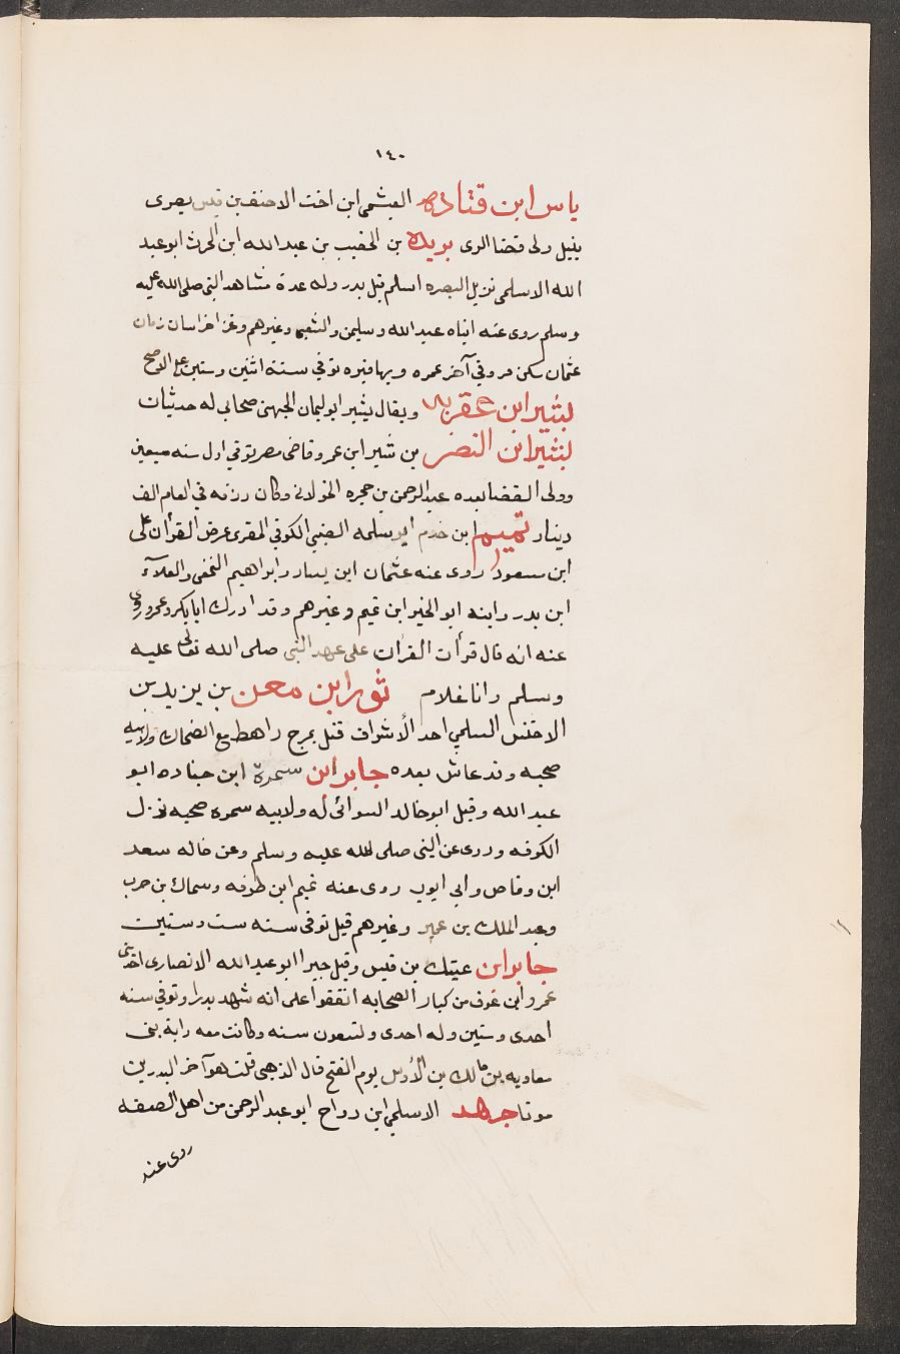 ١٤٠
ياس ابن قتاده العبشمى ابن اخت الاحنف بن قيس بصرى
بنيل ولى قضا الرى بريده بن الحصيب بن عبد الله ابن الحرث ابو عبد
الله الاسلمى نزيل البصره اسلم قبل بدر وله عدة مشاهد النبى صلى الله عليه
وسلم روى عنه ابناه عبد الله وسليمن والشعبى وغيرهم وغزا خراسان زمان
عثمان سكن مرو فى آخر عمره وبها قبره توفي سنة اثنين وستين على الاصح
بشير ابن عقربه ويقال بشير ابو ليمان الجهنى صحابى له حديثان
بشير ابن النضر بن بشير ابن عمرو قاضى مصر توفي اول سنه سبعين
وولى القضا بعده عبد الرحمن بن حجره الخولانى وكان رزقه فى العام الف
دينار تميم ابن حذم ابو سلمه الضبى الكوفى المقرى عرض القرأن على
ابن مسعود روى عنه عثمان ابن يسار وابراهيم النخعى والعلآء
ابن بدر وابنه ابو الخير ابن تميم وغيرهم وقد ادرك ابا بكر وعمر وروى
عنه انه قال قرأت القرأن على عهد النبى صلى الله تعالى عليه
وسلم وانا غلام ثور ابن معن بن يزيد بن
الاخنس السلمى احد الأشراف قتل بمرج راهط مع الضحاك ولابيه
صحبه وقد عاش بعده جابر ابن سمرة ابن جناده ابو
عبد الله وقيل ابو خالد السوائى له ولابيه سمره صحبه نزل
الكوفه وروى عن النبى صلى الله عليه وسلم وعن خاله سعد
ابن وقاص وابى ايوب روى عنه تميم ابن طرفه وسماك بن حرب
وعبد الملك بن عمير وغيرهم قيل توفى سنه ست وستين
جابر ابن عيتك بن قيس وقيل جبر ابو عبد الله الانصارى احد بنى
عمرو ابن عوف من كبار الصحابه اتفقوا على انه شهد بدرا وتوفي سنه
احدى وستين وله احدى وتسعون سنه وكانت معه راية بنى
معاويه بن مالك بن الأوس يوم الفتح قال الذهبى قلت هو آخر البدريين
موتا جرهد الاسلمى ابن رواح ابو عبد الرحمن من اهل الصفه
روى عنه